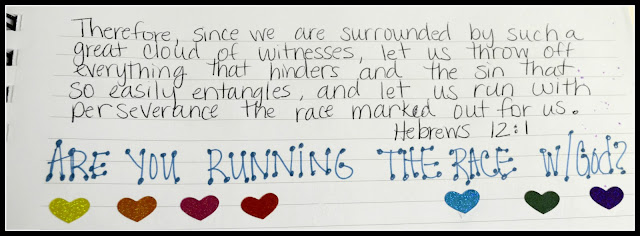 Therefore, since we are surrounded by such a
great cloud of witnesses, let us throw off
everything that hinders and the sin that
so easily entangles, and let us run with
perseverance the race marked out for us.
Hebrews 12:1
ARE YOU RUNNING THE RACE W/God?